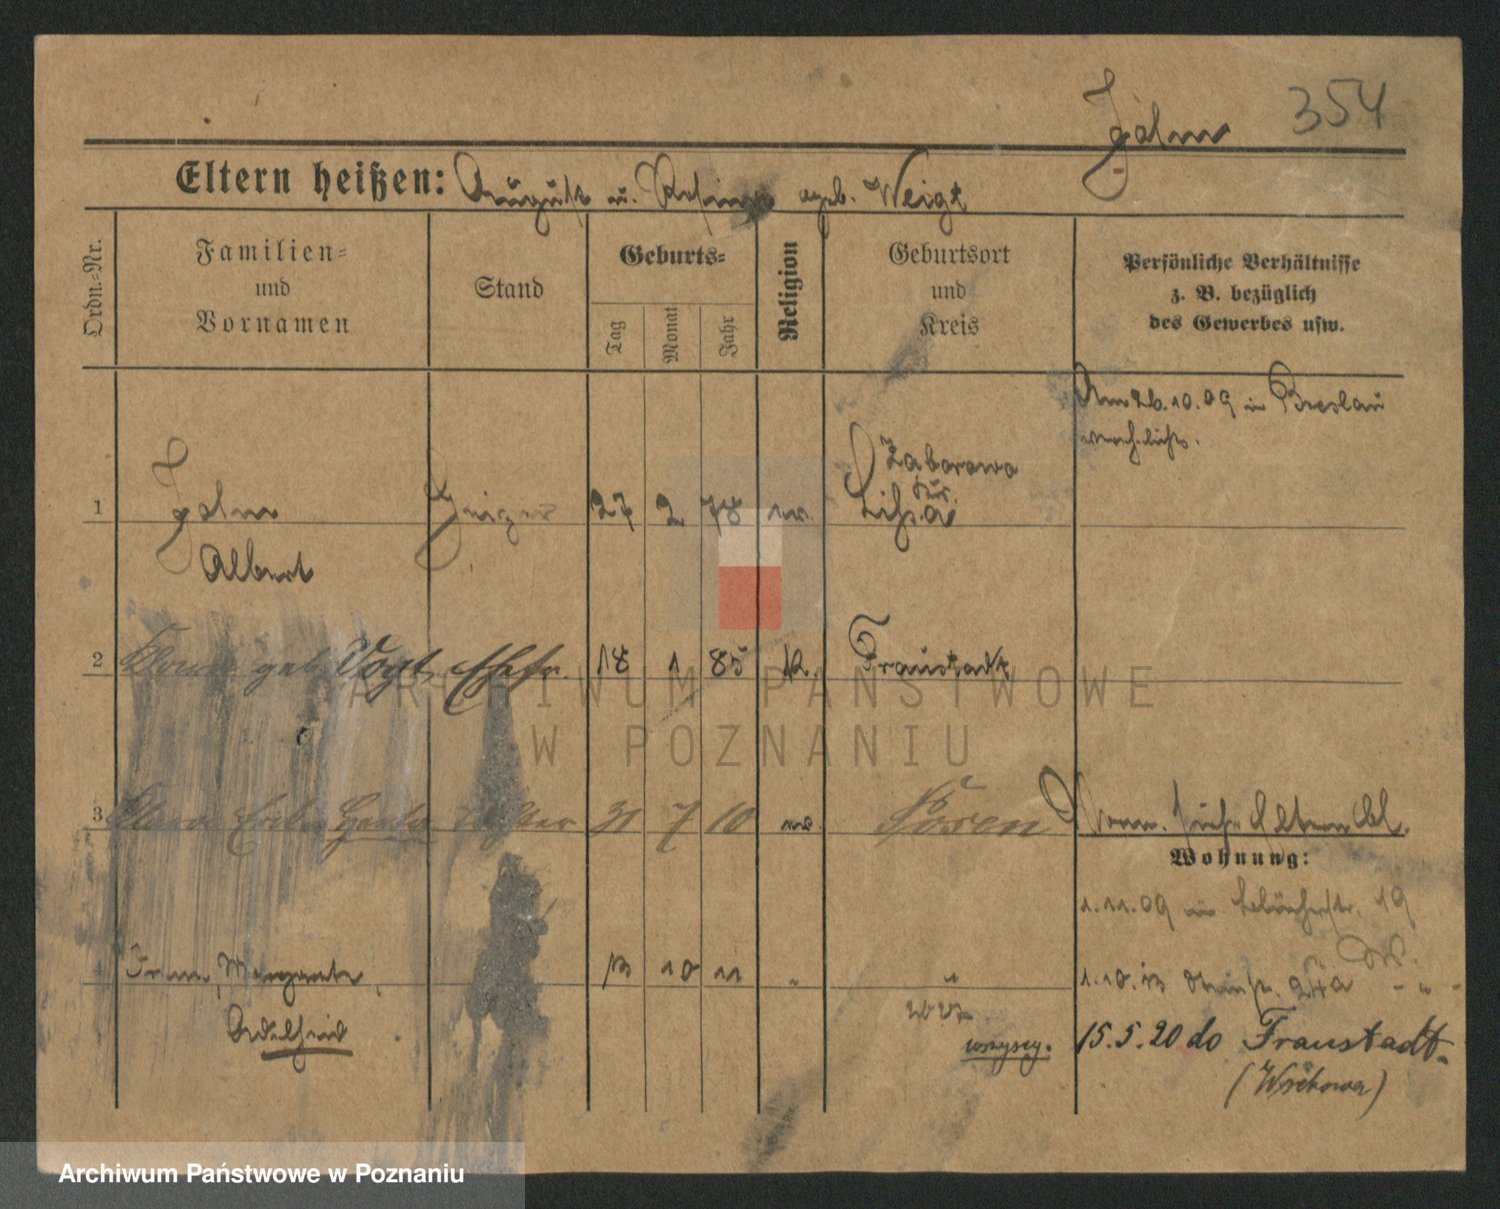 354
Jahn
Eltern heißen: August u. Rosina geb. Weigt
Ordn.-Nr.
Familien-
und
Vornamen
Stand
Geburts-
Tag
Monat
Jahr
Religion
Geburtsort
und
Kreis
Persönliche Verhältnisse
z. B. bezüglich
des Gewerbes usw.
Am 26.10.09 in Breslau
verehelicht.
Zaborowo
1 Jahn Heizer 27 2 78 ev. Lissa
Albert
2 geb. Vogt Ehefr. 18 1 85 k. Fraustadt
3 Klara Herta Tochter 31 7 10 ev Posen
Wohnung:
1.11.09 19
Margarete 13 10 11 " "
1.10.13 24a - " -
wszyscy.
15.5.20 do Fraustadt.
(Wschowa)
ARCHIWUM PAŃSTWOWE
W POZNANIU
Archiwum Państwowe w Poznaniu